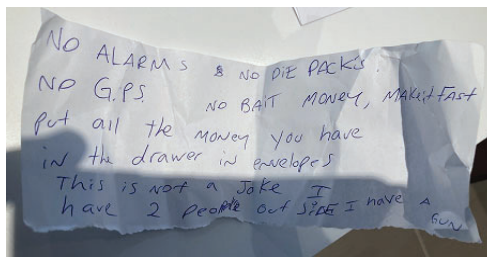 NO ALARMS & NO DIE PACKS.
NO G.P.S. NO BAIT MONEY, MAKE it FAST
Put all the MONEY you have
in the drawer in envelopes
This is NOT a Joke I
have 2 people out SIDE I have A
GUN